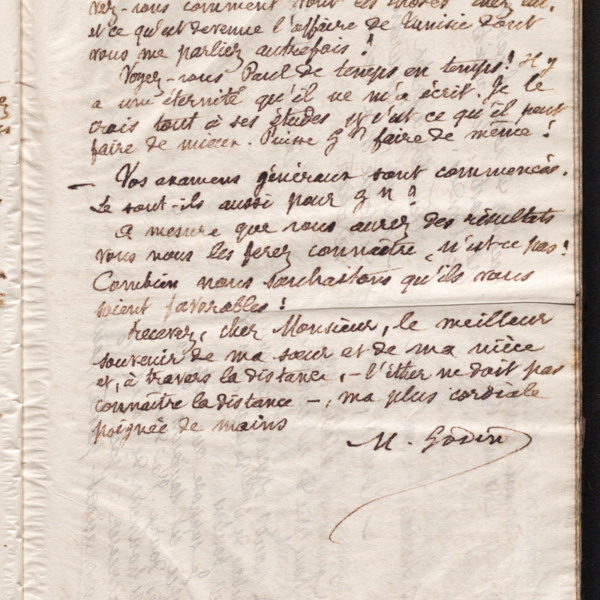 comment vont les choses chez
et ce qu'est devenue l'affaire de Tunisie dont
vous me parliez autrefois !
Voyez-vous Paul de temps en temps ! Il y
a une éternité qu'il ne m'a écrit. Je le
crois tout à ses études et c'est ce qu'il peut
faire de mieux. Puisse G faire de même !
— Vos examens généraux sont commencés.
Le sont-ils aussi pour ?
A mesure que vous aurez des résultats
vous nous les ferez connaître, n'est-ce pas !
Combien nous souhaitons qu'ils vous
soient favorables !
Recevez, cher Monsieur, le meilleur
souvenir de ma sœur et de ma nièce
et, à travers la distance, – l'éther ne doit pas
connaître la distance –, ma plus cordiale
poignée de mains
M. Godin